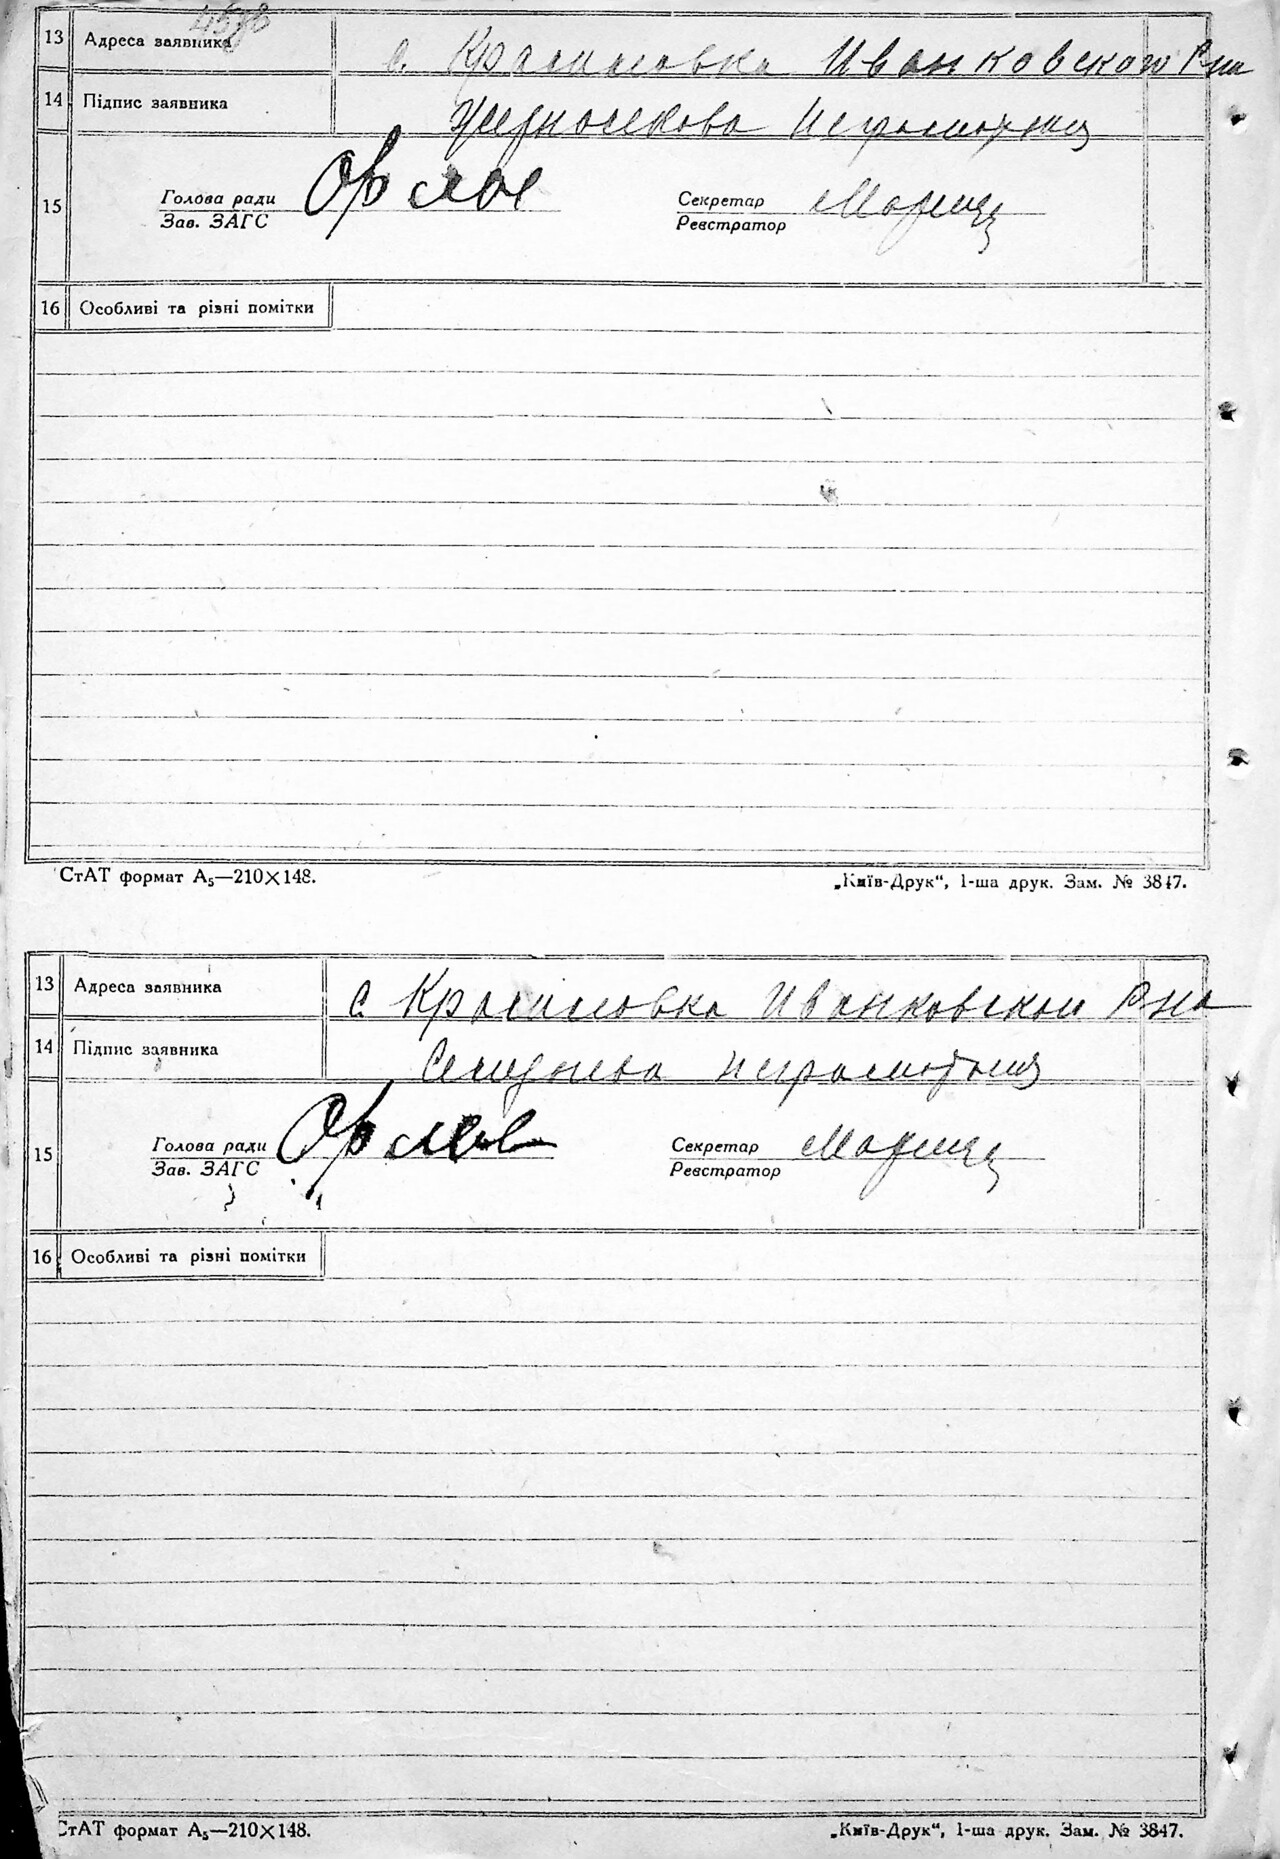 4538
13 Адреса заявника с. Красиловка Иванковского Р на
14 Підпис заявника неграмотная
15 Голова ради Орлов Секретар
Зав. ЗАГС Реєстратор
16 Особливі та різні помітки
СтАТ формат А₅—210×148. „Київ-Друк“, 1-ша друк. Зам. № 3847.
13 Адреса заявника С Красиловка Иванковской Р на
14 Підпис заявника неграмотная
15 Голова ради Орлов Секретар
Зав. ЗАГС Реєстратор
16 Особливі та різні помітки
СтАТ формат А₅—210×148. „Київ-Друк“, 1-ша друк. Зам. № 3847.